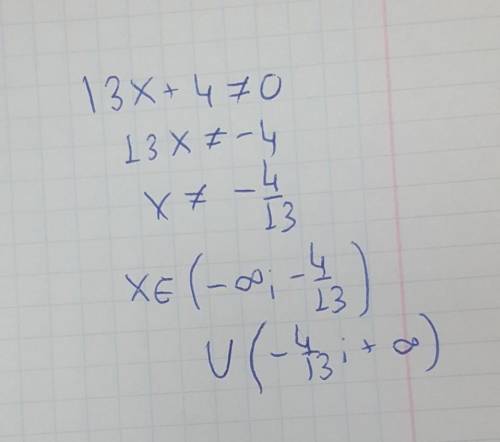 13x + 4 ≠ 0
13x ≠ -4
x ≠ -4/13
x ∈ (-∞; -4/13)
∪ (-4/13; + ∞)